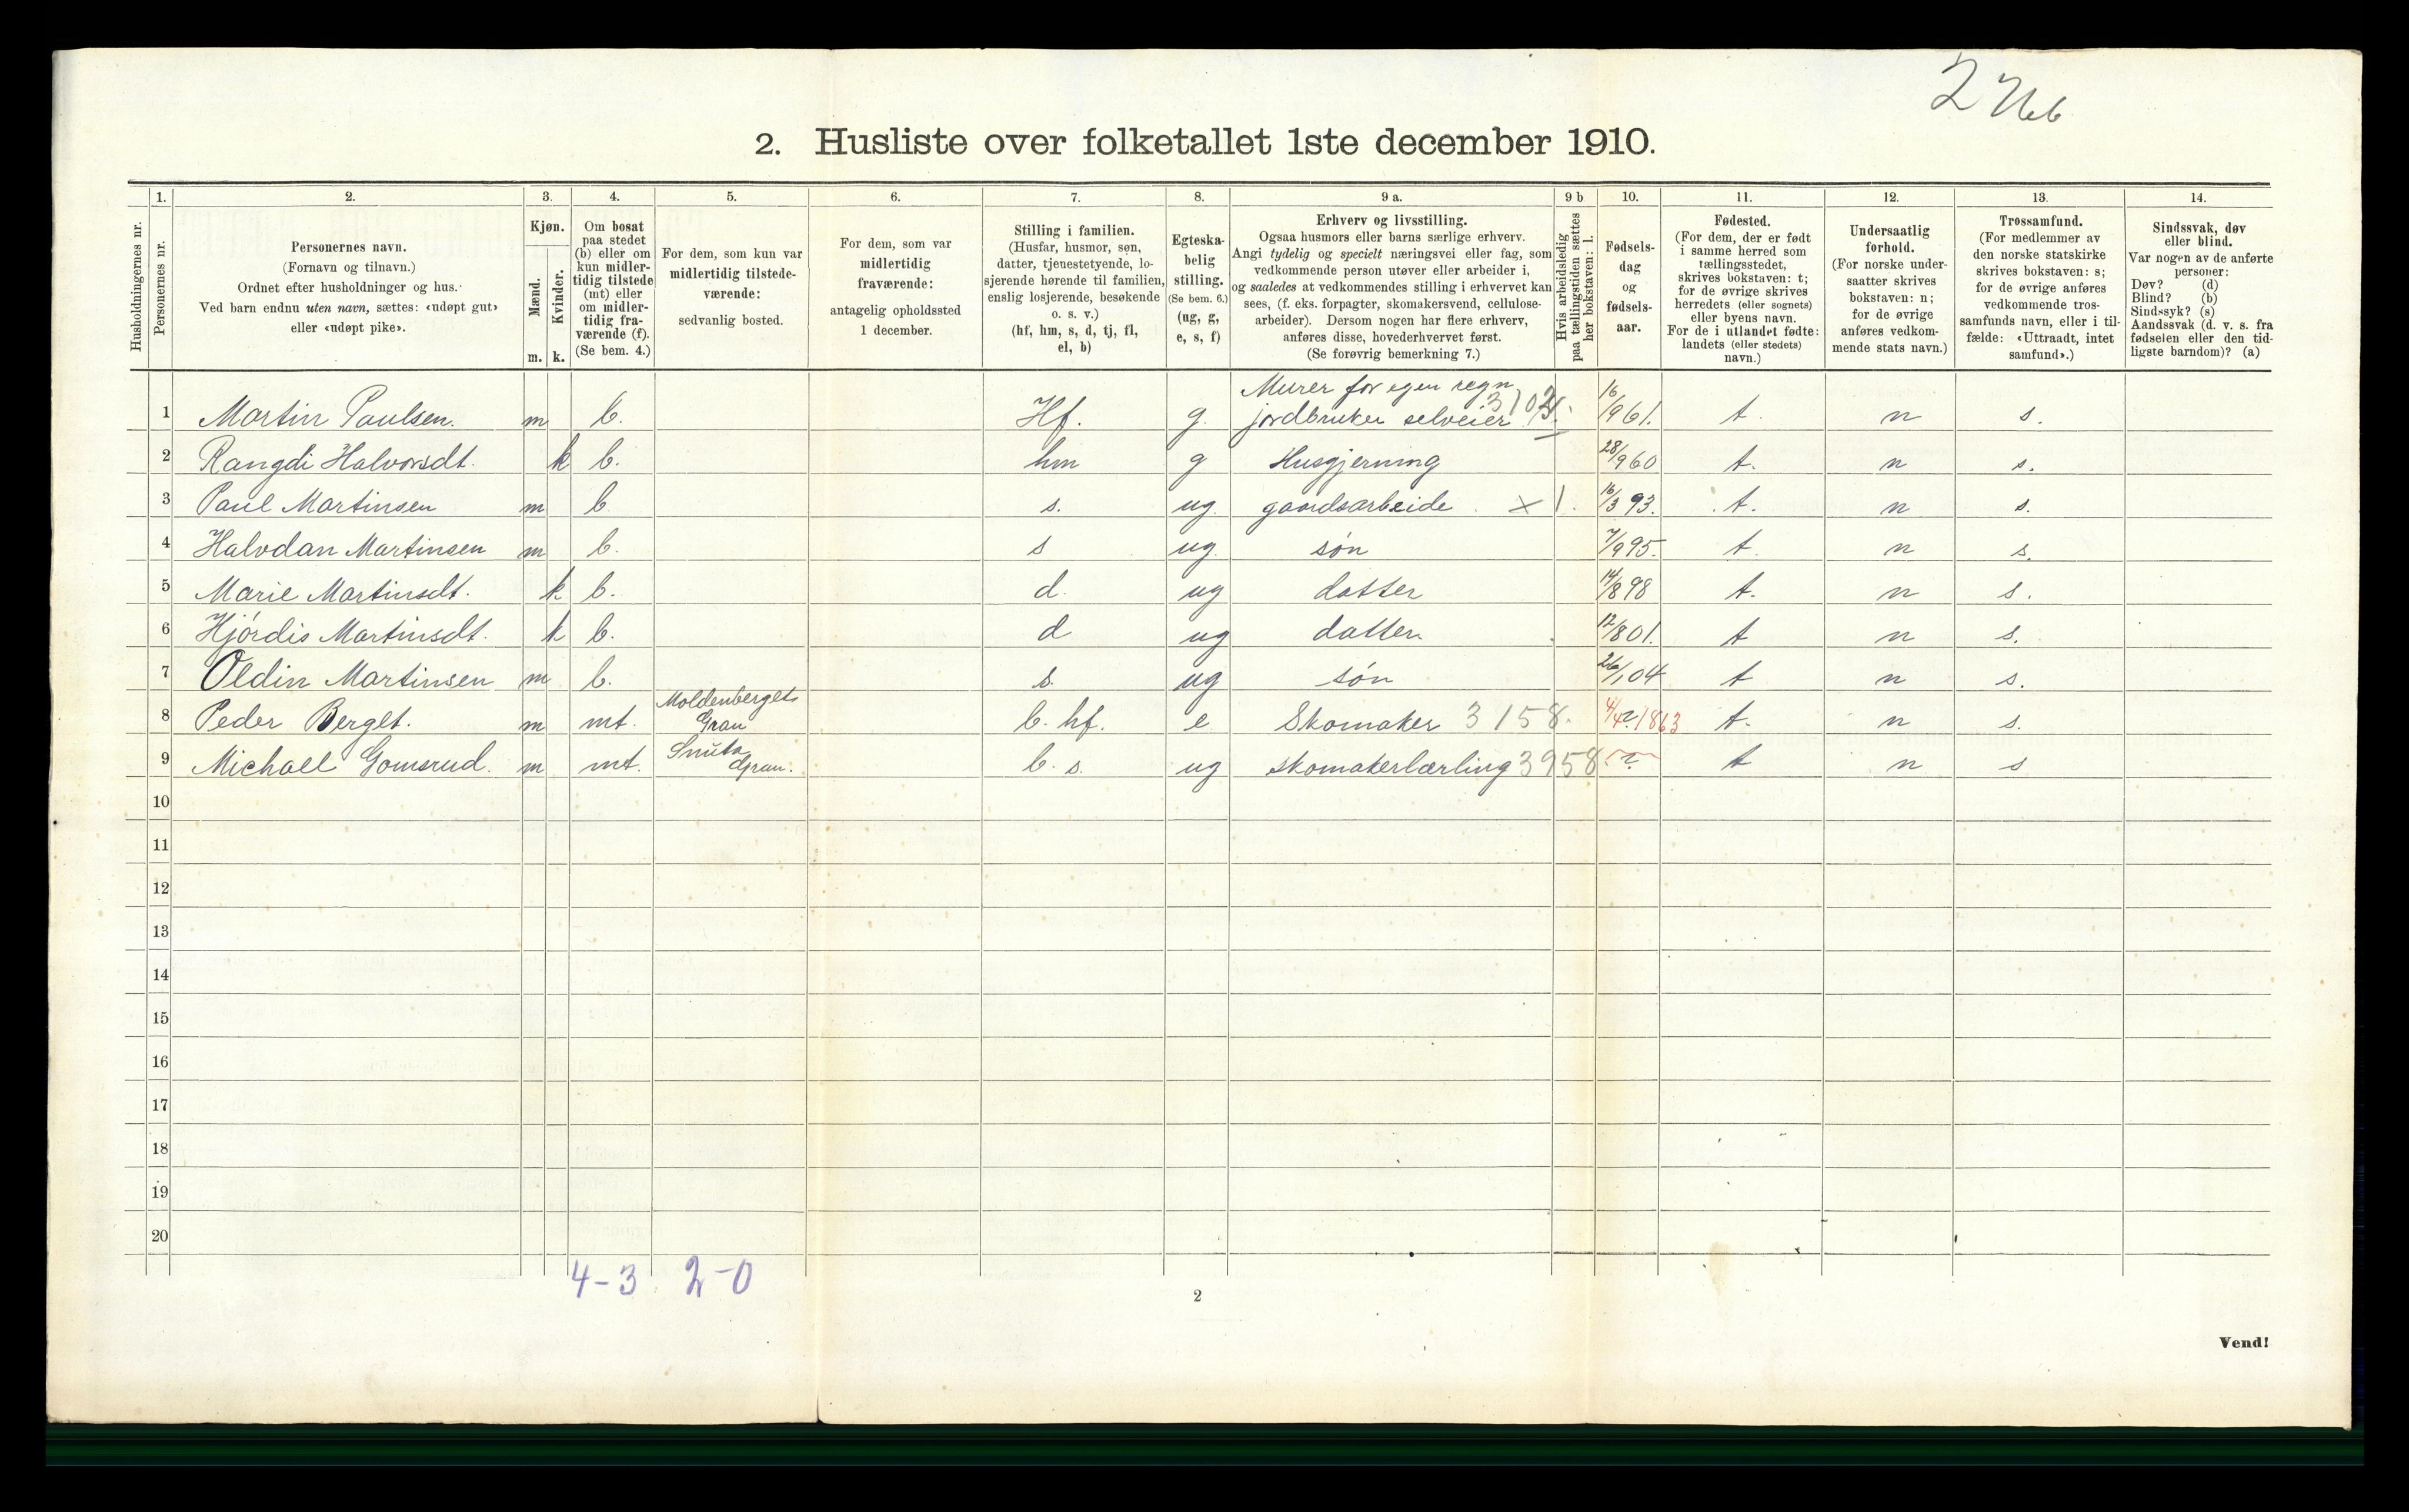 2. Husliste over folketallet 1ste december 1910.
Husholdningernes nr.
1.
Personernes nr.
2.
Personernes navn.
(Fornavn og tilnavn.)
Ordnet efter husholdninger og hus.
Ved barn endnu uten navn, sættes: «udøpt gut»
eller «udøpt pike».
3.
Kjøn.
Mænd.
m.
Kvinder.
k.
4.
Om bosat
paa stedet
(b) eller om
kun midler-
tidig tilstede
(mt) eller
om midler-
tidig fra-
værende (f).
(Se bem. 4.)
5.
For dem, som kun var
midlertidig tilstede-
værende:
sedvanlig bosted.
6.
For dem, som var
midlertidig
fraværende:
antagelig opholdssted
1 december.
7.
Stilling i familien.
(Husfar, husmor, søn,
datter, tjenestetyende, lo-
sjerende hørende til familien,
enslig losjerende, besøkende
o. s. v.)
(hf, hm, s, d, tj, fl,
el, b)
8.
Egteska-
belig
stilling.
(Se bem. 6.)
(ug, g,
e, s, f)
9 a.
Erhverv og livsstilling.
Ogsaa husmors eller barns særlige erhverv.
Angi tydelig og specielt næringsvei eller fag, som
vedkommende person utøver eller arbeider i,
og saaledes at vedkommendes stilling i erhvervet kan
sees, (f. eks. forpagter, skomakersvend, cellulose-
arbeider). Dersom nogen har flere erhverv,
anføres disse, hovederhvervet først.
(Se forøvrig bemerkning 7.)
9 b
Hvis arbeidsledig
paa tællingstiden sættes
her bokstaven: l.
10.
Fødsels-
dag
og
fødsels-
aar.
11.
Fødested.
(For dem, der er født
i samme herred som
tællingsstedet,
skrives bokstaven: t;
for de øvrige skrives
herredets (eller sognets)
eller byens navn.
For de i utlandet fødte:
landets (eller stedets)
navn.)
12.
Undersaatlig
forhold.
(For norske under-
saatter skrives
bokstaven: n;
for de øvrige
anføres vedkom-
mende stats navn.)
13.
Trossamfund.
(For medlemmer av
den norske statskirke
skrives bokstaven: s;
for de øvrige anføres
vedkommende tros-
samfunds navn, eller i til-
fælde: «Uttraadt, intet
samfund».)
14.
Sindssvak, døv
eller blind.
Var nogen av de anførte
personer:
Døv? (d)
Blind? (b)
Sindssyk? (s)
Aandssvak (d. v. s. fra
fødselen eller den tid-
ligste barndom)? (a)
Murer for egen regn
1 Martin Paulsen. m b. Hf. g. jordbruker selveier 16/9 61. t. n s.
2 Rangdi Halvorsdt. k b. hm g Husgjerning 28/9 60 t. n s.
3 Paul Martinsen m b s. ug. gaardsarbeide x 1. 16/3 93. t. n s.
4 Halvdan Martinsen m b. s ug søn 7/9 95. t. n s.
5 Marie Martinsdt. k b. d. ug datter 14/8 98 t. n s.
6 Hjórdis Martinsdt. k b. d ug datter 12/8 01. t n s.
7 Oldin Martinsen m b. s. ug søn 26/1 04 t n s.
Moldenberget
8 Peder Berget. m mt. Gran b. hf. e Skomaker 3158. 4/4 1863 t. n s.
Snuta
9 Michael Gomsrud. m mt. Gran. b. s. ug skomakerlærling 3958 ? t n s
10
11
12
13
14
15
16
17
18
19
20
4-3 2-0
2
Vend!